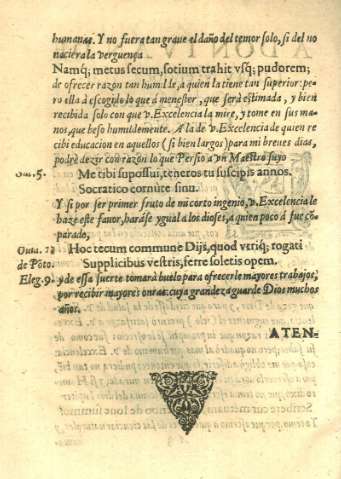 humanas. Y no fuera tan graue el daño del temor solo, si del no
naciera la verguença
Namq; metus secum, sotium trahit vsq; pudorem;
de ofrecer razon tan humilde, a quien la tiene tan superior: pe-
ro ella à escogido lo que à menester, que serà estimada, y bien
recibida solo con que v. Excelencia la mire, y tome en sus ma-
nos, que beso humildemente. A la de v. Excelencia de quien re
cibi educacion en aquellos (si bien largos) para mi breues dias,
podrè dezir con razòn lo que Persio a vn Maestro suyo
Me tibi supossui, teneros tu suscipis annos.
Socratico cornute sinu.
Y si por ser primer fruto de mi corto ingenio, v. Excelencia le
haze este fauor, haràse ygual a los dioses, a quien poco à fue cõ-
parado,
Hoc tecum commune Dijs, quod vtriq; rogati
Supplicibus vestris, ferre soletis opem.
Eleg. 9. y de essa suerte tomarà buelo para ofrecerle mayores trabajos,
por recibir mayores onras: cuya grandeza guarde Dios muchos
años.
ATEN-